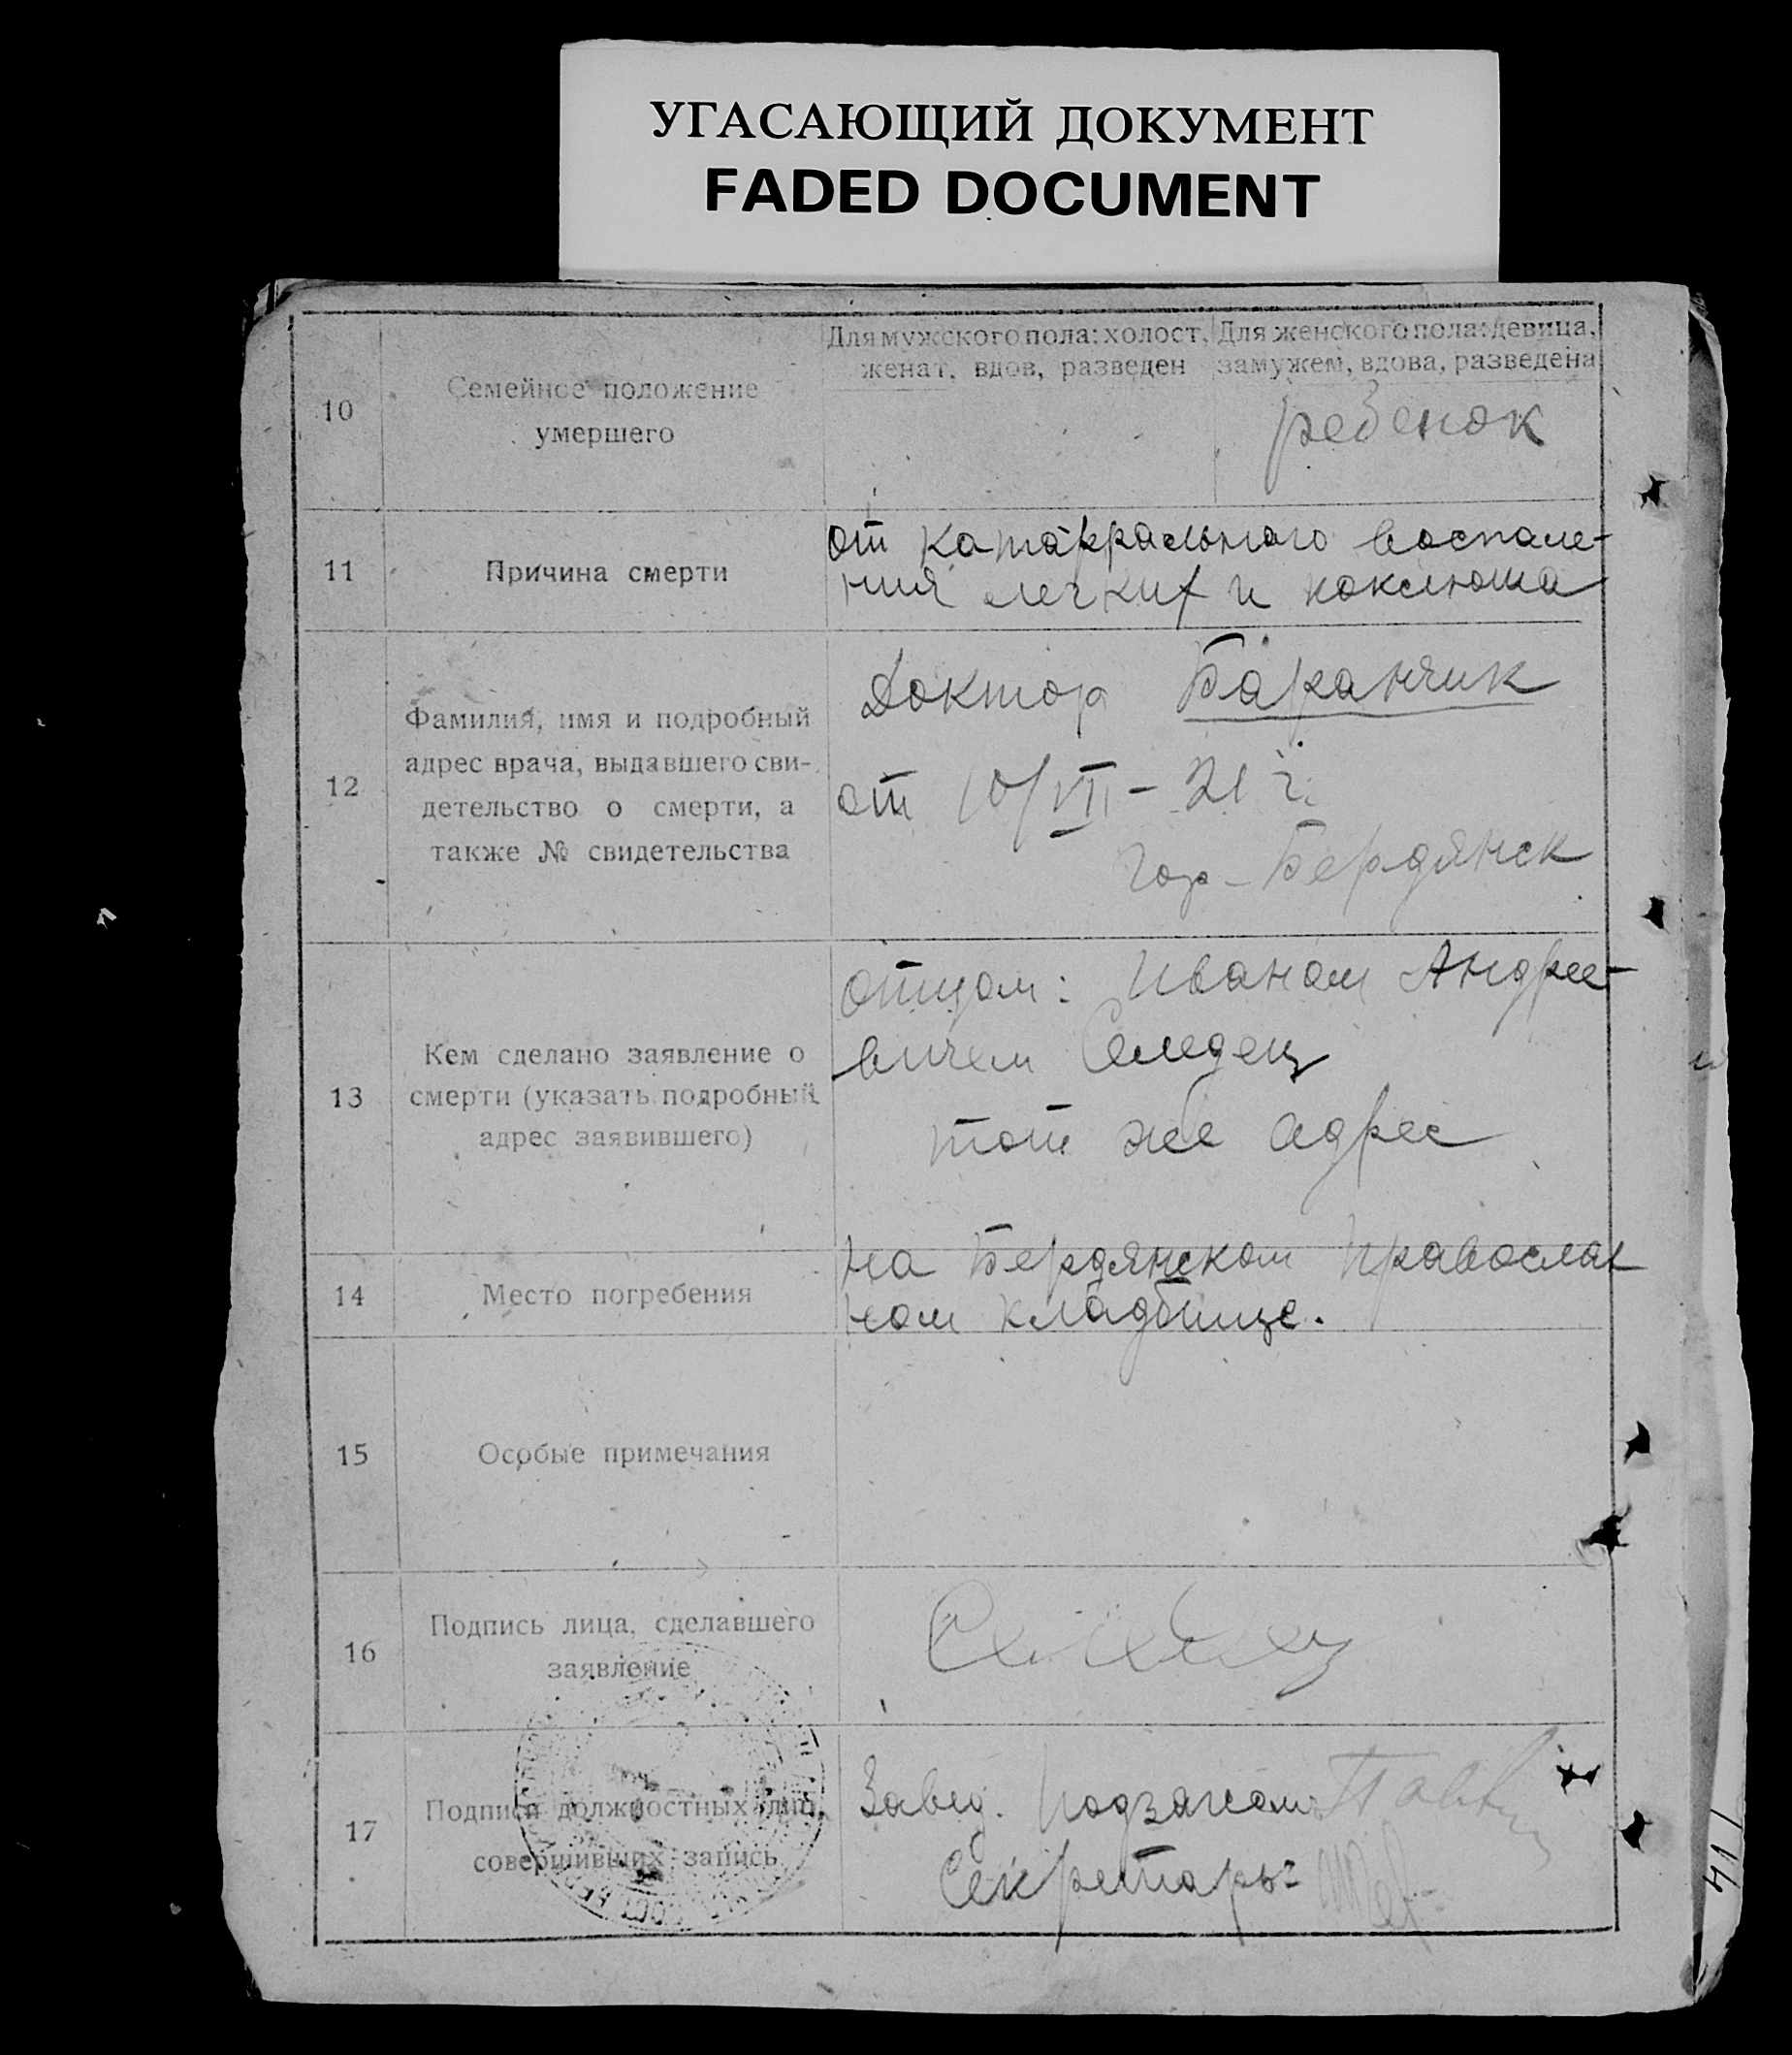 УГАСАЮЩИЙ ДОКУМЕНТ
FADED DOCUMENT
10
Семейное положение
умершего
Для мужского пола: холост,
женат, вдов, разведен
Для женского пола: девица,
замужем, вдова, разведена
ребенок
11
Причина смерти
от катаррального воспале-
ния легких и коклюша
12
Фамилия, имя и подробный
адрес врача, выдавшего сви-
детельство о смерти, а
также № свидетельства
Доктор Баранчик
от 10/VII - 21 г.
гор - Бердянск
13
Кем сделано заявление о
смерти (указать подробный
адрес заявившего)
отцом: Иваном Андрее-
вичем
тот же адрес
14
Место погребения
на Бердянском Православ
ном кладбище.
15
Особые примечания
16
Подпись лица, сделавшего
заявление
17
Подписи должностных лиц,
совершивших запись
Завед. Подзагсом
Секретарь
411